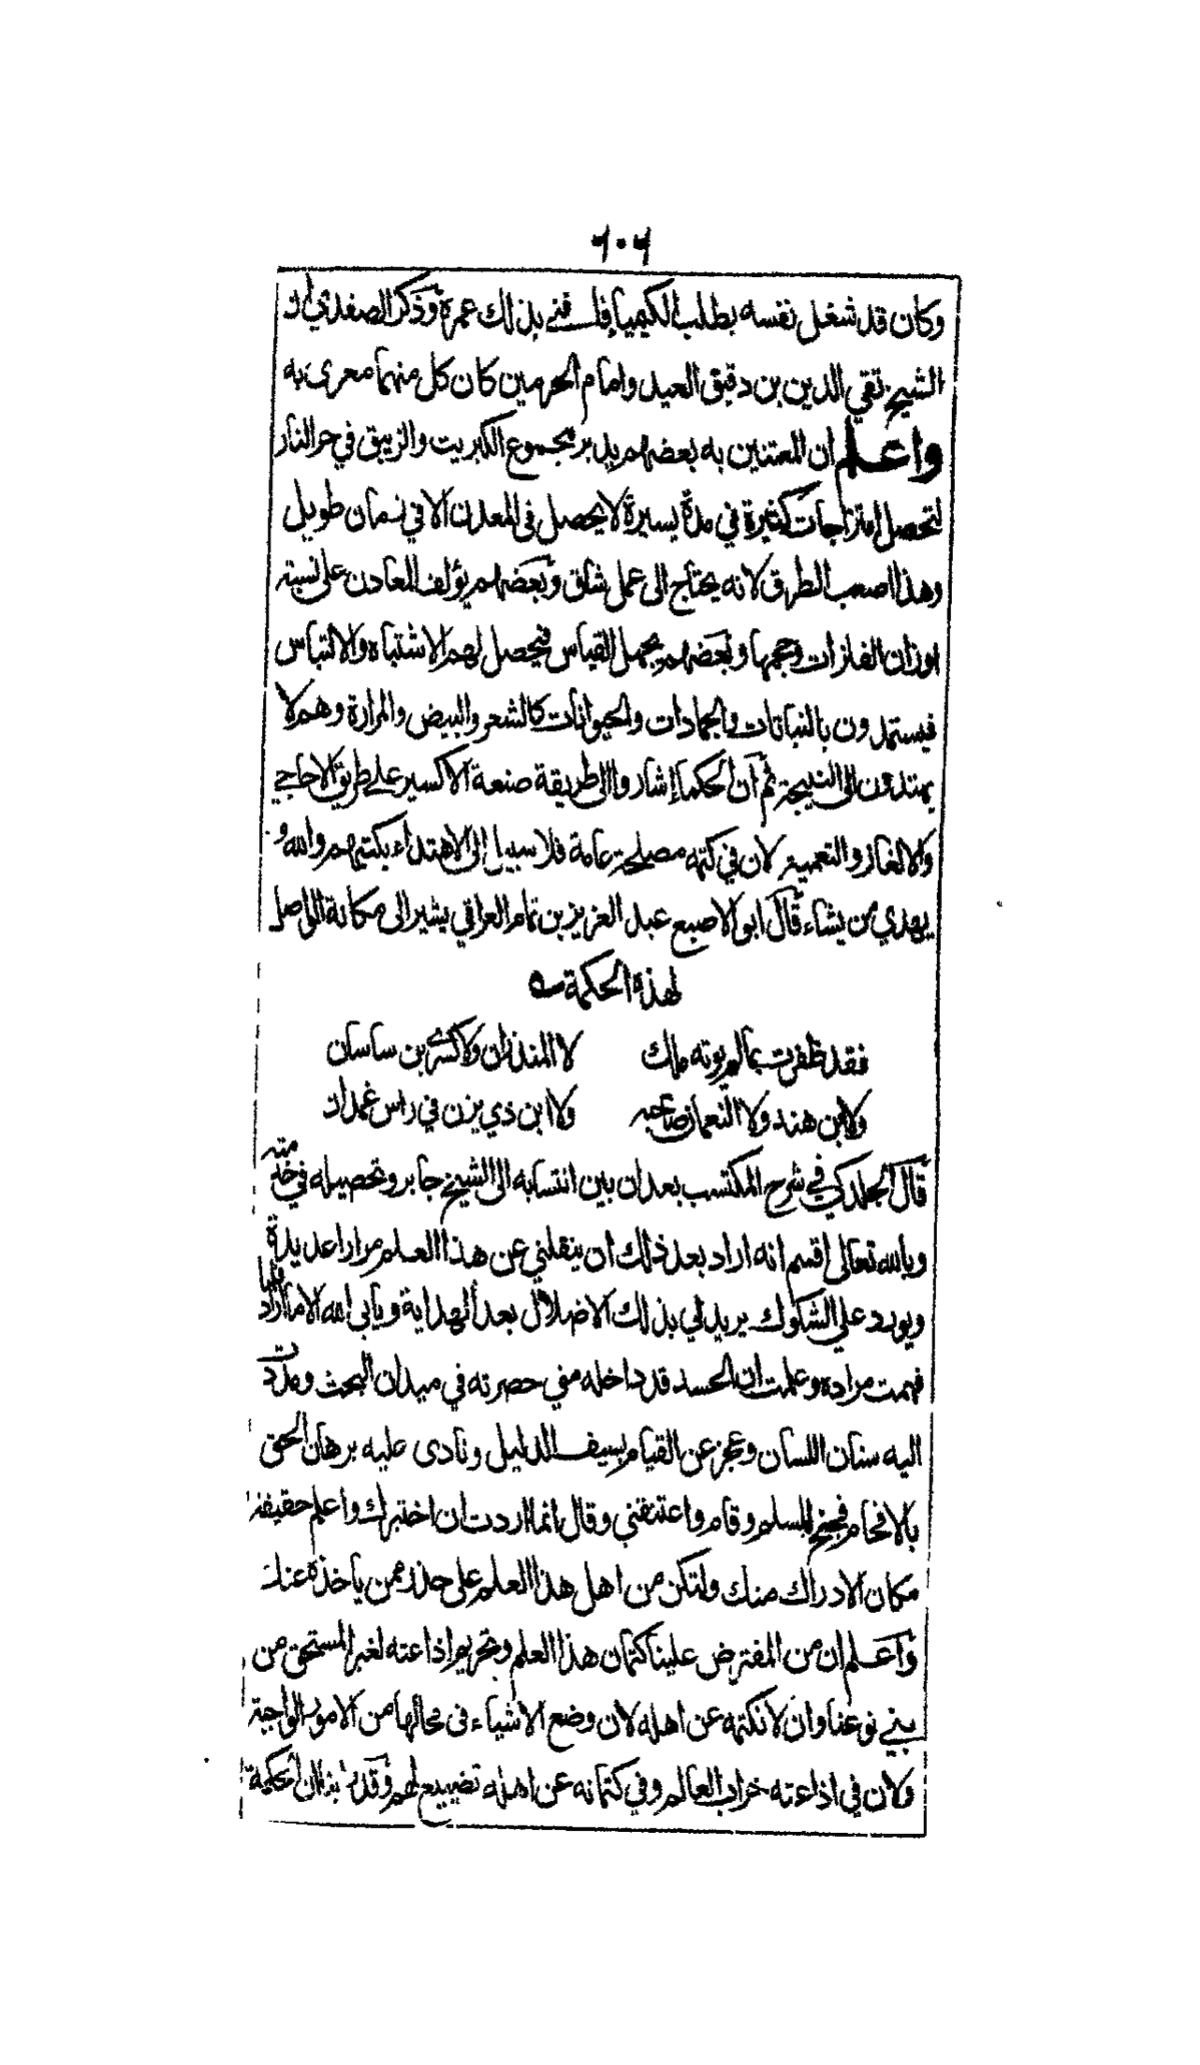 ٦٠٦
وكان قد شغل نفسه بطلب الكيميا فافنى بذلك عمره وذكر الصفدي ان
الشيخ تقي الدين بن دقيق العيد وامام الحرمين كان كل منهما مغرى به
واعلم ان المعتنين به بعضهم يدبر مجموع الكبريت والزيبق في حر النار
لتحصل امتزاجات كثيرة في مدة يسيرة لا يحصل في المعدن الا في زمان طويل
وهذا اصعب الطرق لانه يحتاج الى عمل شاق وبعضهم يؤلف المعادن على نسبته
اوزان الفلزات وحجمها وبعضهم يجهل القياس فيحصل لهم الاشتباه والالتباس
فيستمدون بالنباتات والجمادات والحيوانات كالشعر والبيض والمرارة وهم لا
يهتدون الى النتيجة ثم ان الحكما اشاروا الى طريقة صنعة الاكسير على طريق الاحاجي
والالغاز والتعمية لان في كتمه مصلحة عامة فلا سبيل الى الاهتداء بكتبهم والله و
يهدي من يشاء قال ابو الاصبع عبد العزيز بن تمام العراقي يشير الى مكانة الواصل
لهذه الحكمة
فقد ظفرت بما لم يوته ملك لا المنذران ولا كسرى بن ساسان
ولا ابن هند ولا النعمان صاحبه ولا ابن ذي يزن في راس غمدان
قال الجلدكي في شرح المكتسب بعد ان بين انتسابه الى الشيخ جابر وتحصيله في خدمته
وبالله تعالى اقسم انه اراد بعد ذلك ان ينقلني عن هذا العلم مرارا عديدة
ويورد علي الشكوك يريد لي بذلك الاضلال بعد الهداية ويابى الله الا ما اراد فلما
فهمت مراده وعلمت ان الحسد قد داخله مني حصرته في ميدان البحث ومددت
اليه سنان اللسان وعجز عن القيام بسيف الدليل ونادى عليه برهان الحق
بالافحام فجنح للسلم وقام واعتنقني وقال انما اردت ان اختبرك واعلم حقيقة
مكان الادراك منك ولتكن من اهل هذا العلم على حذر ممن ياخذه عنك
واعلم ان من المفترض علينا كتمان هذا العلم وتحريم اذاعته لغير المستحق من
بني نوعنا وان لا نكتمه عن اهله لان وضع الاشياء في محالها من الامور الواجبة
ولان في اذاعته خراب العالم وفي كتمانه عن اهله تضييع لهم وقد راينا ان الحكمة